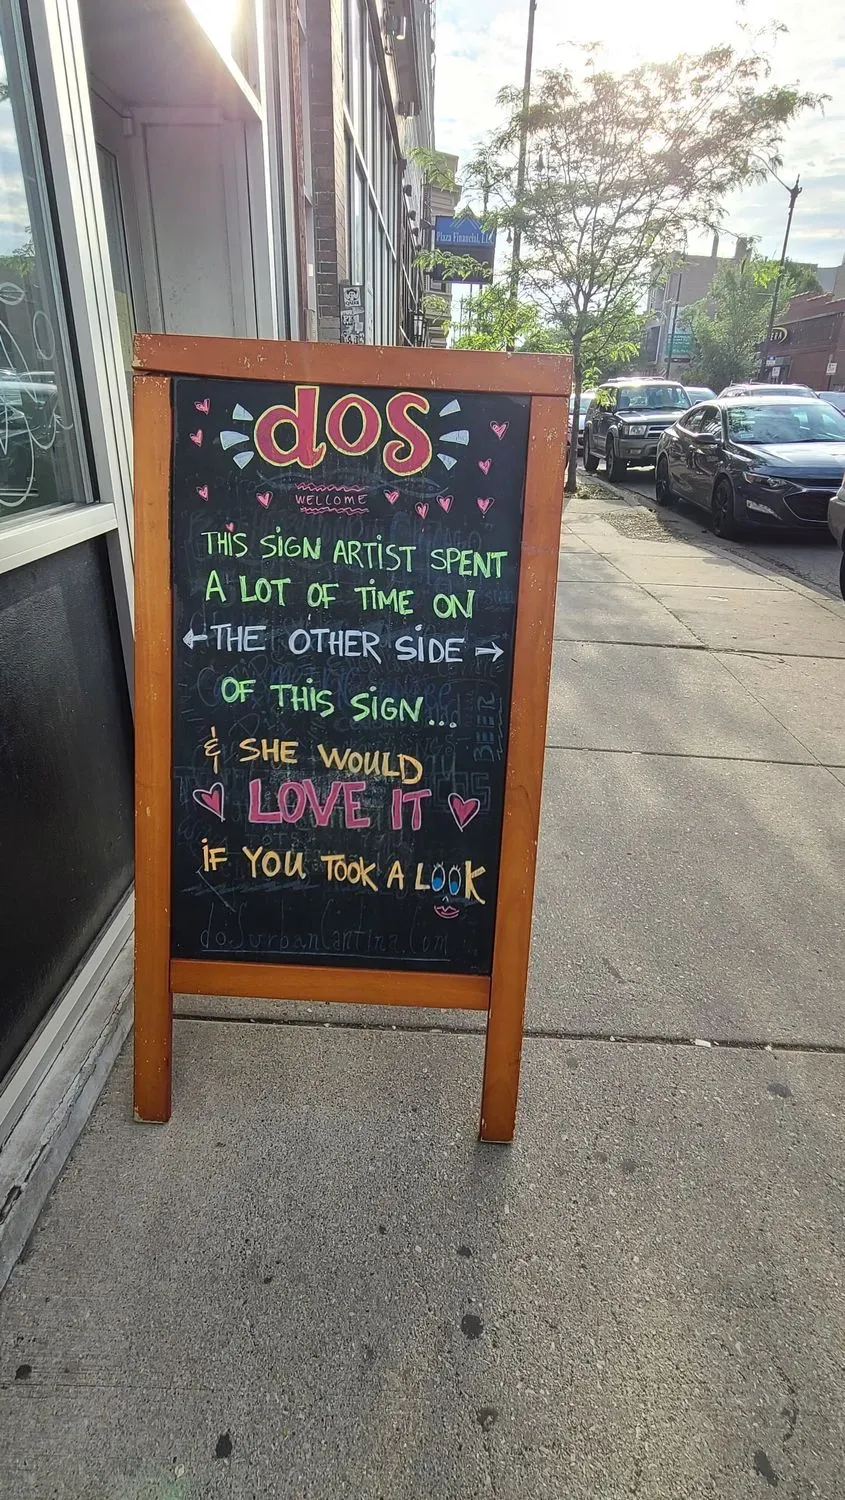 Plaza Financial, LLC
dos
WELLOME
THIS SIGN ARTIST SPENT
A LOT OF TIME ON
←THE OTHER SIDE→
OF THIS SIGN...
& SHE WOULD
LOVE IT
IF YOU TOOK A LOOK
dosurbanCantina.Com
BEER